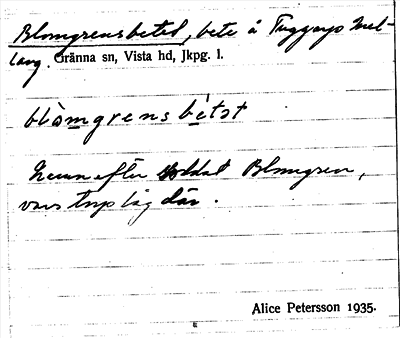 Blomgrensbetet, bete å Tuggarps Mel-
lang. Gränna sn, Vista hd, Jkpg. l.
blòmgrensbétət
Namn efter soldat Blomgren,
vars torp låg där.
Alice Petersson 1935.